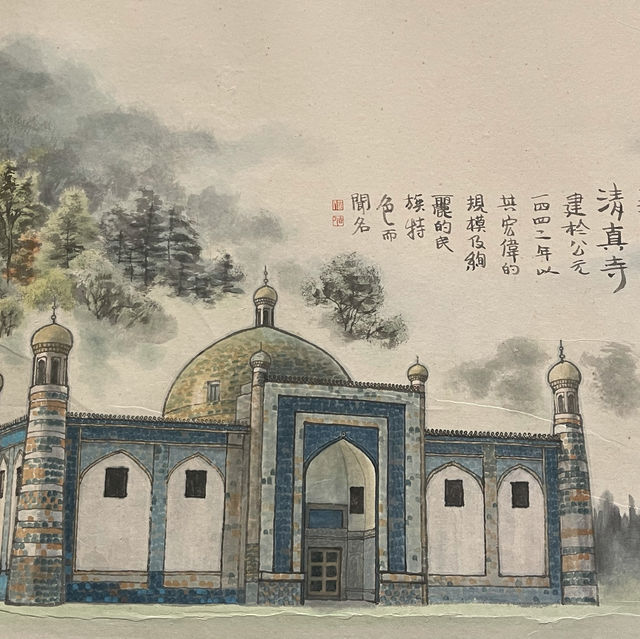 清真寺
建於公元
一四四二年以
其宏偉的
規模及絢
麗的民
族特
色而
聞名